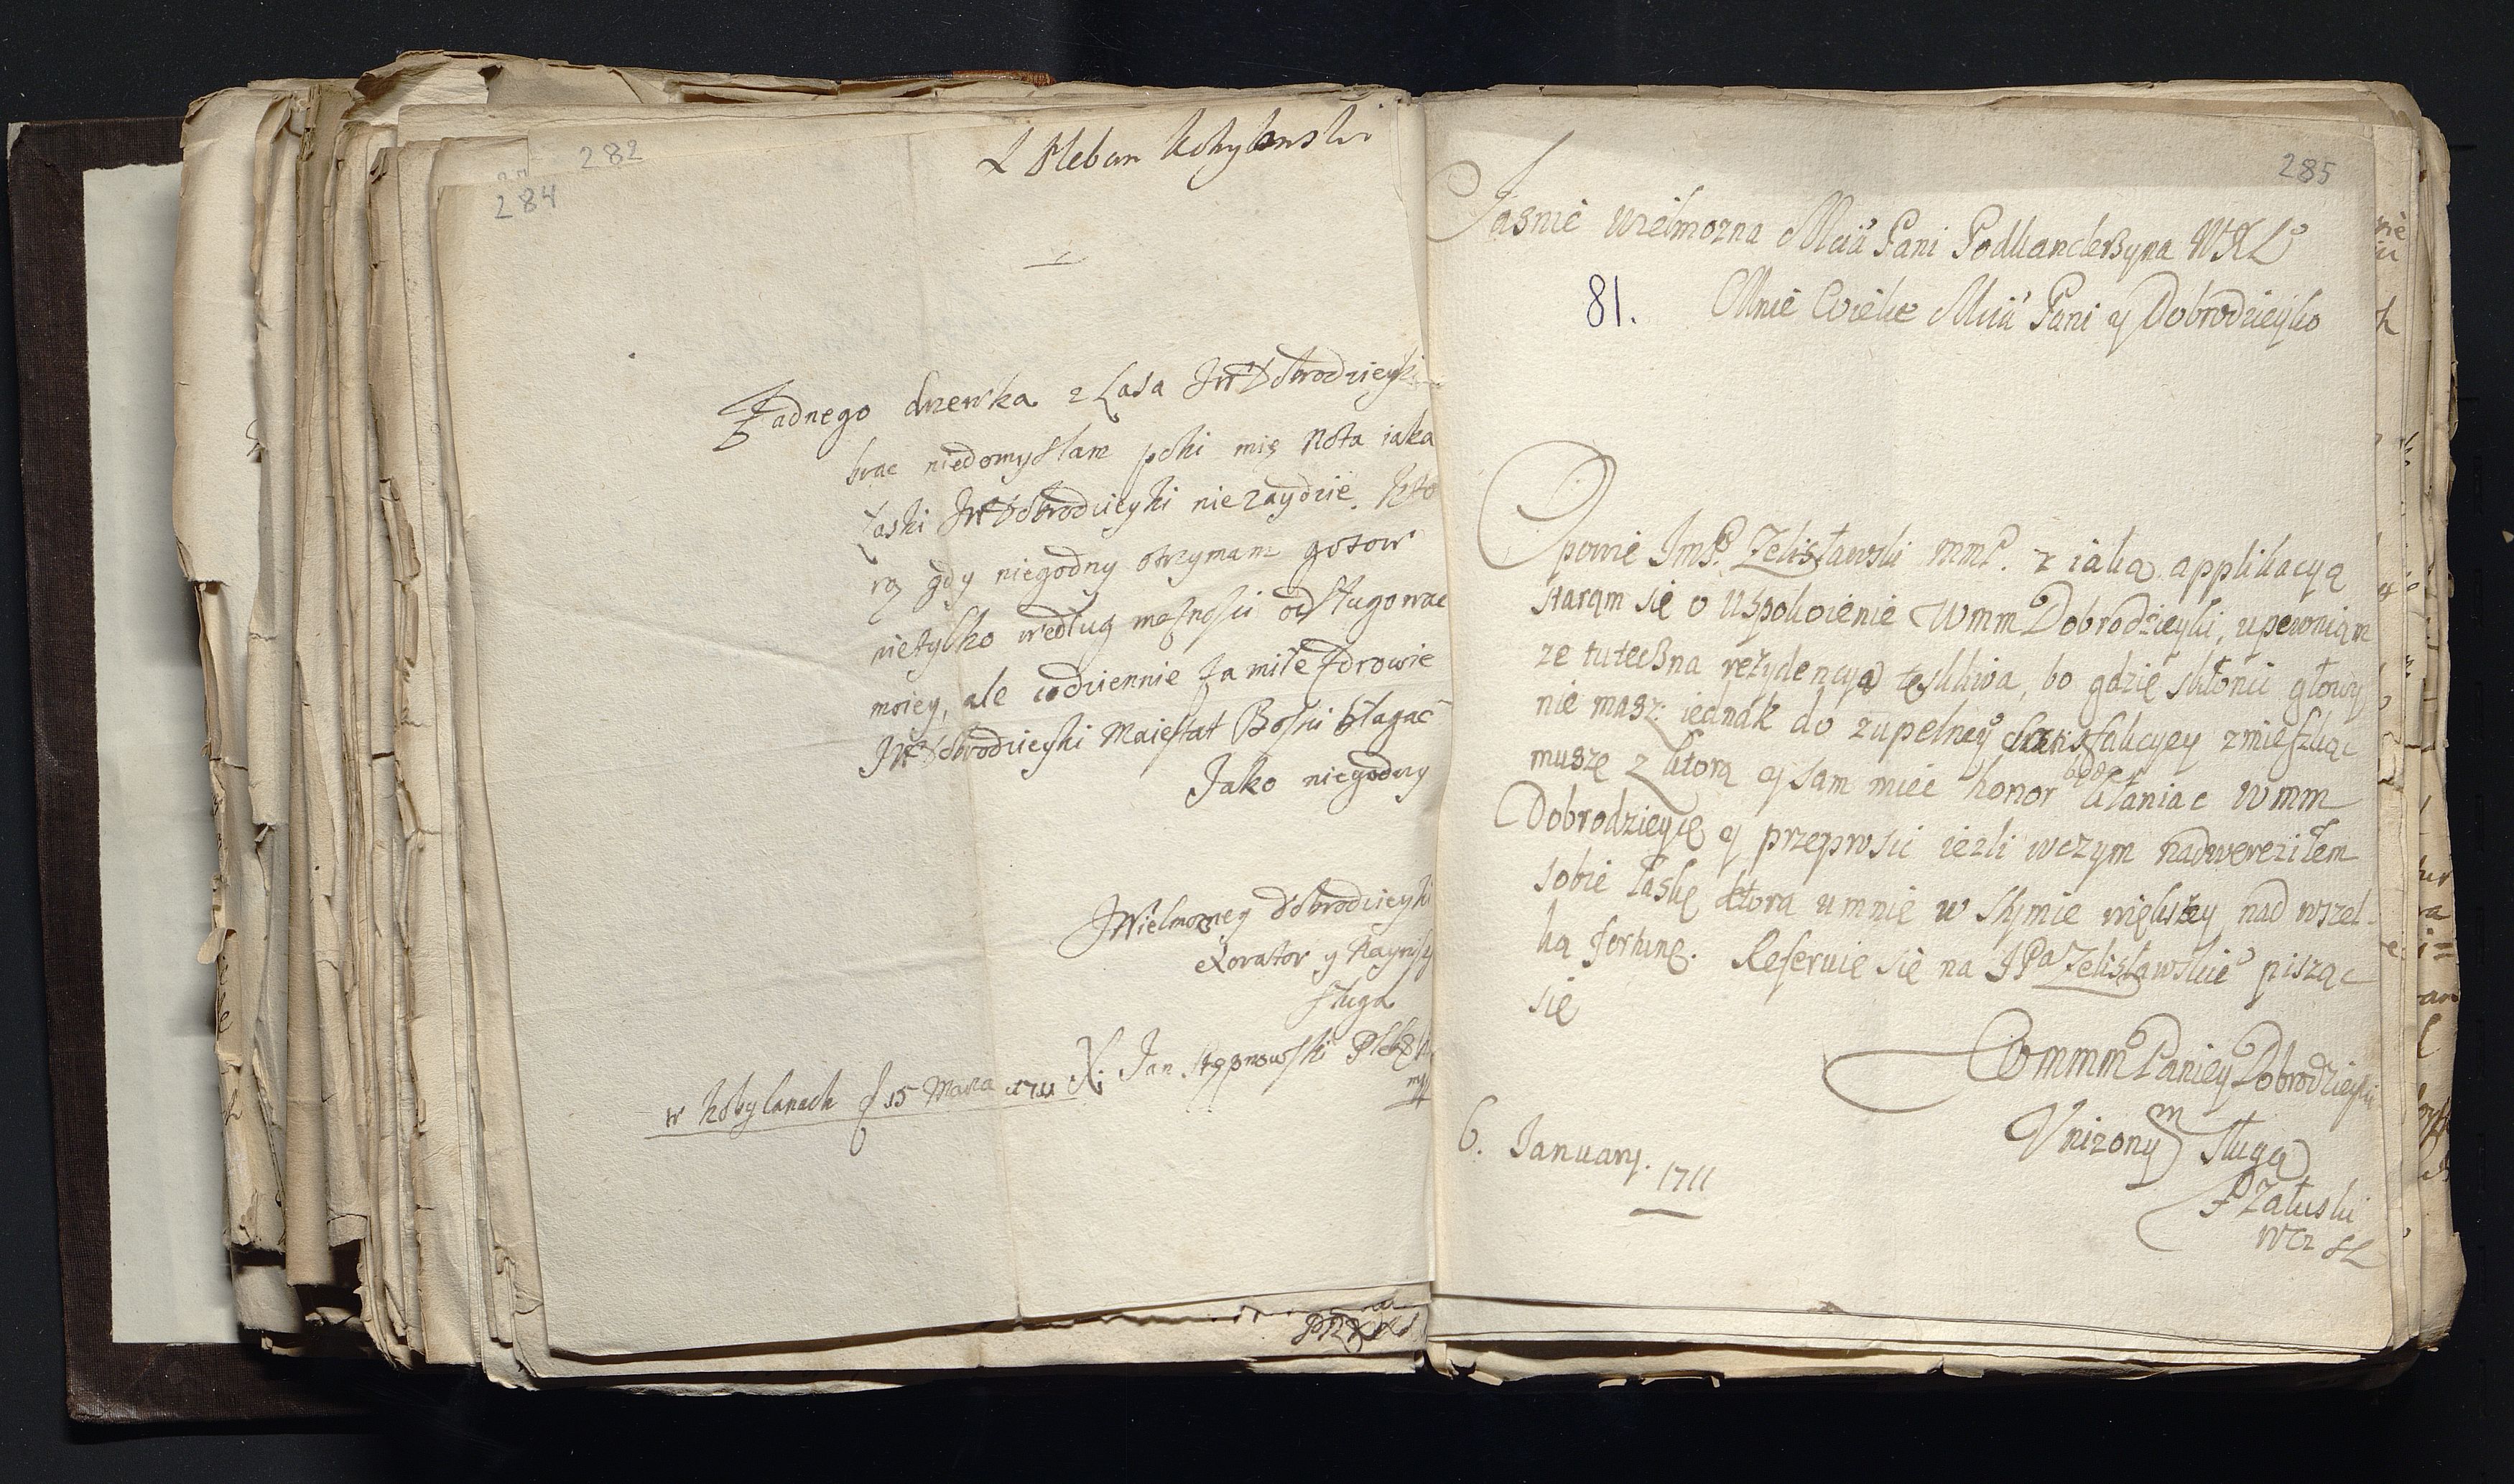 282
284
X Pleban Kobylanski
Żadnego drzewka z Lasa JWDobrodzieyki
brac niedomyslam poki mię Nota iaka
łaski JWDobrodzieyki niezaydzie. Kto
rą gdy niegodny otrzymam gotow
nietylko według możnosci odsługowac
moiey, ale codziennie za miłe zdrowie
JWDobrodzieyki Maiestat Boski błagać
Jako niegodny
JWielmozney Dobrodzieyki
Exorator y Nayniższy
sługa
X. Jan Stępnowski
w Kobylanach d 15 Marca 1711
285
Jasnie wielmozna Mciā Pani Podkancleßyna WXL
81.
Mnie Wielce Mciā Pani y Dobrodzieyko
Opowie ImP. Zelisławski mmP. z iaką applikacyą
staram się o uspokoienie Wmm Dobrodzieyki, upewniam
ze tuteßna rezydencya teskliwa, bo gdzie skłonić głowy
nie masz: iednak do zupełney satisfakcyey zmieszkac
muszę z ktorą y sam miec honor będę kłaniac Wmm
Dobrodzieyce y przeprosic iezli wczym nadwereziłem
sobie łaskę ktora umnie w stymie większey nad wszel-
ką fortunę. Referuie się na JPa Zelisławskie pisząc
się
Wmmm Paniey Dobrodzieyki
Vnizonym sługą
Załuski
6. January. 1711